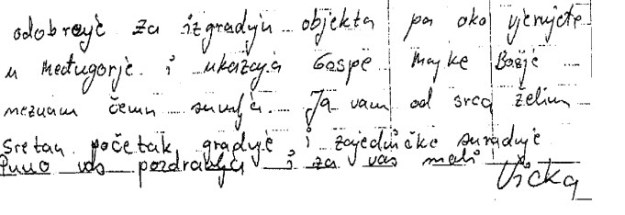 odobrenje za izgradnju objekta pa ako vjerujete
u Međugorje i ukazanja Gospe Majke Božje
neznam čemu sumnja. Ja vam od srca želim
sretan početak gradnje i zajedničke suradnje
Puno vas pozdravlja i za vas moli Vicka